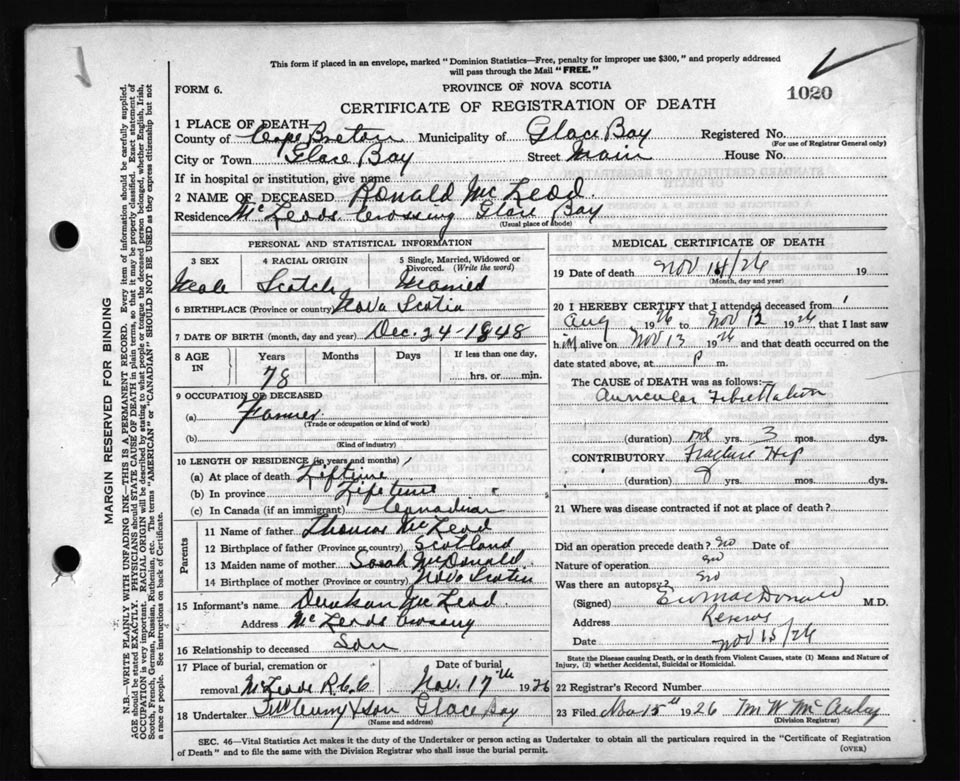 This form if placed in an envelope, marked "Dominion Statistics—Free, penalty for improper use $300," and properly addressed
will pass through the Mail "FREE."
FORM 6.
PROVINCE OF NOVA SCOTIA
1020
CERTIFICATE OF REGISTRATION OF DEATH
1 PLACE OF DEATH
County of Cape Breton Municipality of Glace Bay Registered No.
(For use of Registrar General only)
City or Town Glace Bay Street Main House No.
If in hospital or institution, give name
2 NAME OF DECEASED Ronald McLeod.
Residence McLeods Crossing Glace Bay
(Usual place of abode)
PERSONAL AND STATISTICAL INFORMATION
3 SEX 4 RACIAL ORIGIN 5 Single, Married, Widowed or Divorced. (Write the word)
Male Scotch Married
6 BIRTHPLACE (Province or country) Nova Scotia
7 DATE OF BIRTH (month, day and year) Dec. 24-1848
8 AGE IN Years Months Days If less than one day,
78 hrs. or min.
9 OCCUPATION OF DECEASED
(a) Farmer
(Trade or occupation or kind of work)
(b)
(Kind of industry)
10 LENGTH OF RESIDENCE (in years and months)
(a) At place of death Lifetime
(b) In province Lifetime
(c) In Canada (if an immigrant) Canadian
Parents
11 Name of father Thomas McLeod
12 Birthplace of father (Province or country) Scotland
13 Maiden name of mother Sarah McDonald
14 Birthplace of mother (Province or country) Nova Scotia
15 Informant's name McLeod.
Address McLeods Crossing
16 Relationship to deceased Son
17 Place of burial, cremation or Date of burial
removal McLeods Nov. 17th 1926
18 Undertaker & Son Glace Bay
(Name and address)
MEDICAL CERTIFICATE OF DEATH
19 Date of death Nov 14/26 19
(Month, day and year)
20 I HEREBY CERTIFY that I attended deceased from
Aug 1926 to Nov 13 1926, that I last saw
him alive on Nov 13 1926 and that death occurred on the
date stated above, at P m.
The CAUSE OF DEATH was as follows:—
Auricular Fibrillation
(duration) yrs. 3 mos. dys.
CONTRIBUTORY Fracture Hip
(duration) yrs. mos. dys.
21 Where was disease contracted if not at place of death?
Did an operation precede death? no Date of
Nature of operation no
Was there an autopsy? no
(Signed) MacDonald M.D.
Address Reserve
Date Nov 15/26
State the Disease causing Death, or in death from Violent Causes, state (1) Means and Nature of
Injury, (2) whether Accidental, Suicidal or Homicidal.
22 Registrar's Record Number
23 Filed Nov 15th 1926 M W McAulay
(Division Registrar)
SEC. 46—Vital Statistics Act makes it the duty of the Undertaker or person acting as Undertaker to obtain all the particulars required in the "Certificate of Registration
of Death" and to file the same with the Division Registrar who shall issue the burial permit.
(OVER)
MARGIN RESERVED FOR BINDING
N.B.—WRITE PLAINLY WITH UNFADING INK—THIS IS A PERMANENT RECORD. Every item of information should be carefully supplied.
AGE should be stated EXACTLY. PHYSICIANS should STATE CAUSE OF DEATH in plain terms, so that it may be properly classified. Exact statement of
OCCUPATION is very important. RACIAL ORIGIN will be described by stating to what people or tongue the deceased person belonged, whether English, Irish,
Scotch, French, German, Russian, Ruthenian, etc. The terms "AMERICAN" or "CANADIAN" SHOULD NOT BE USED as they express citizenship but not
a race or people. See instructions on back of Certificate.